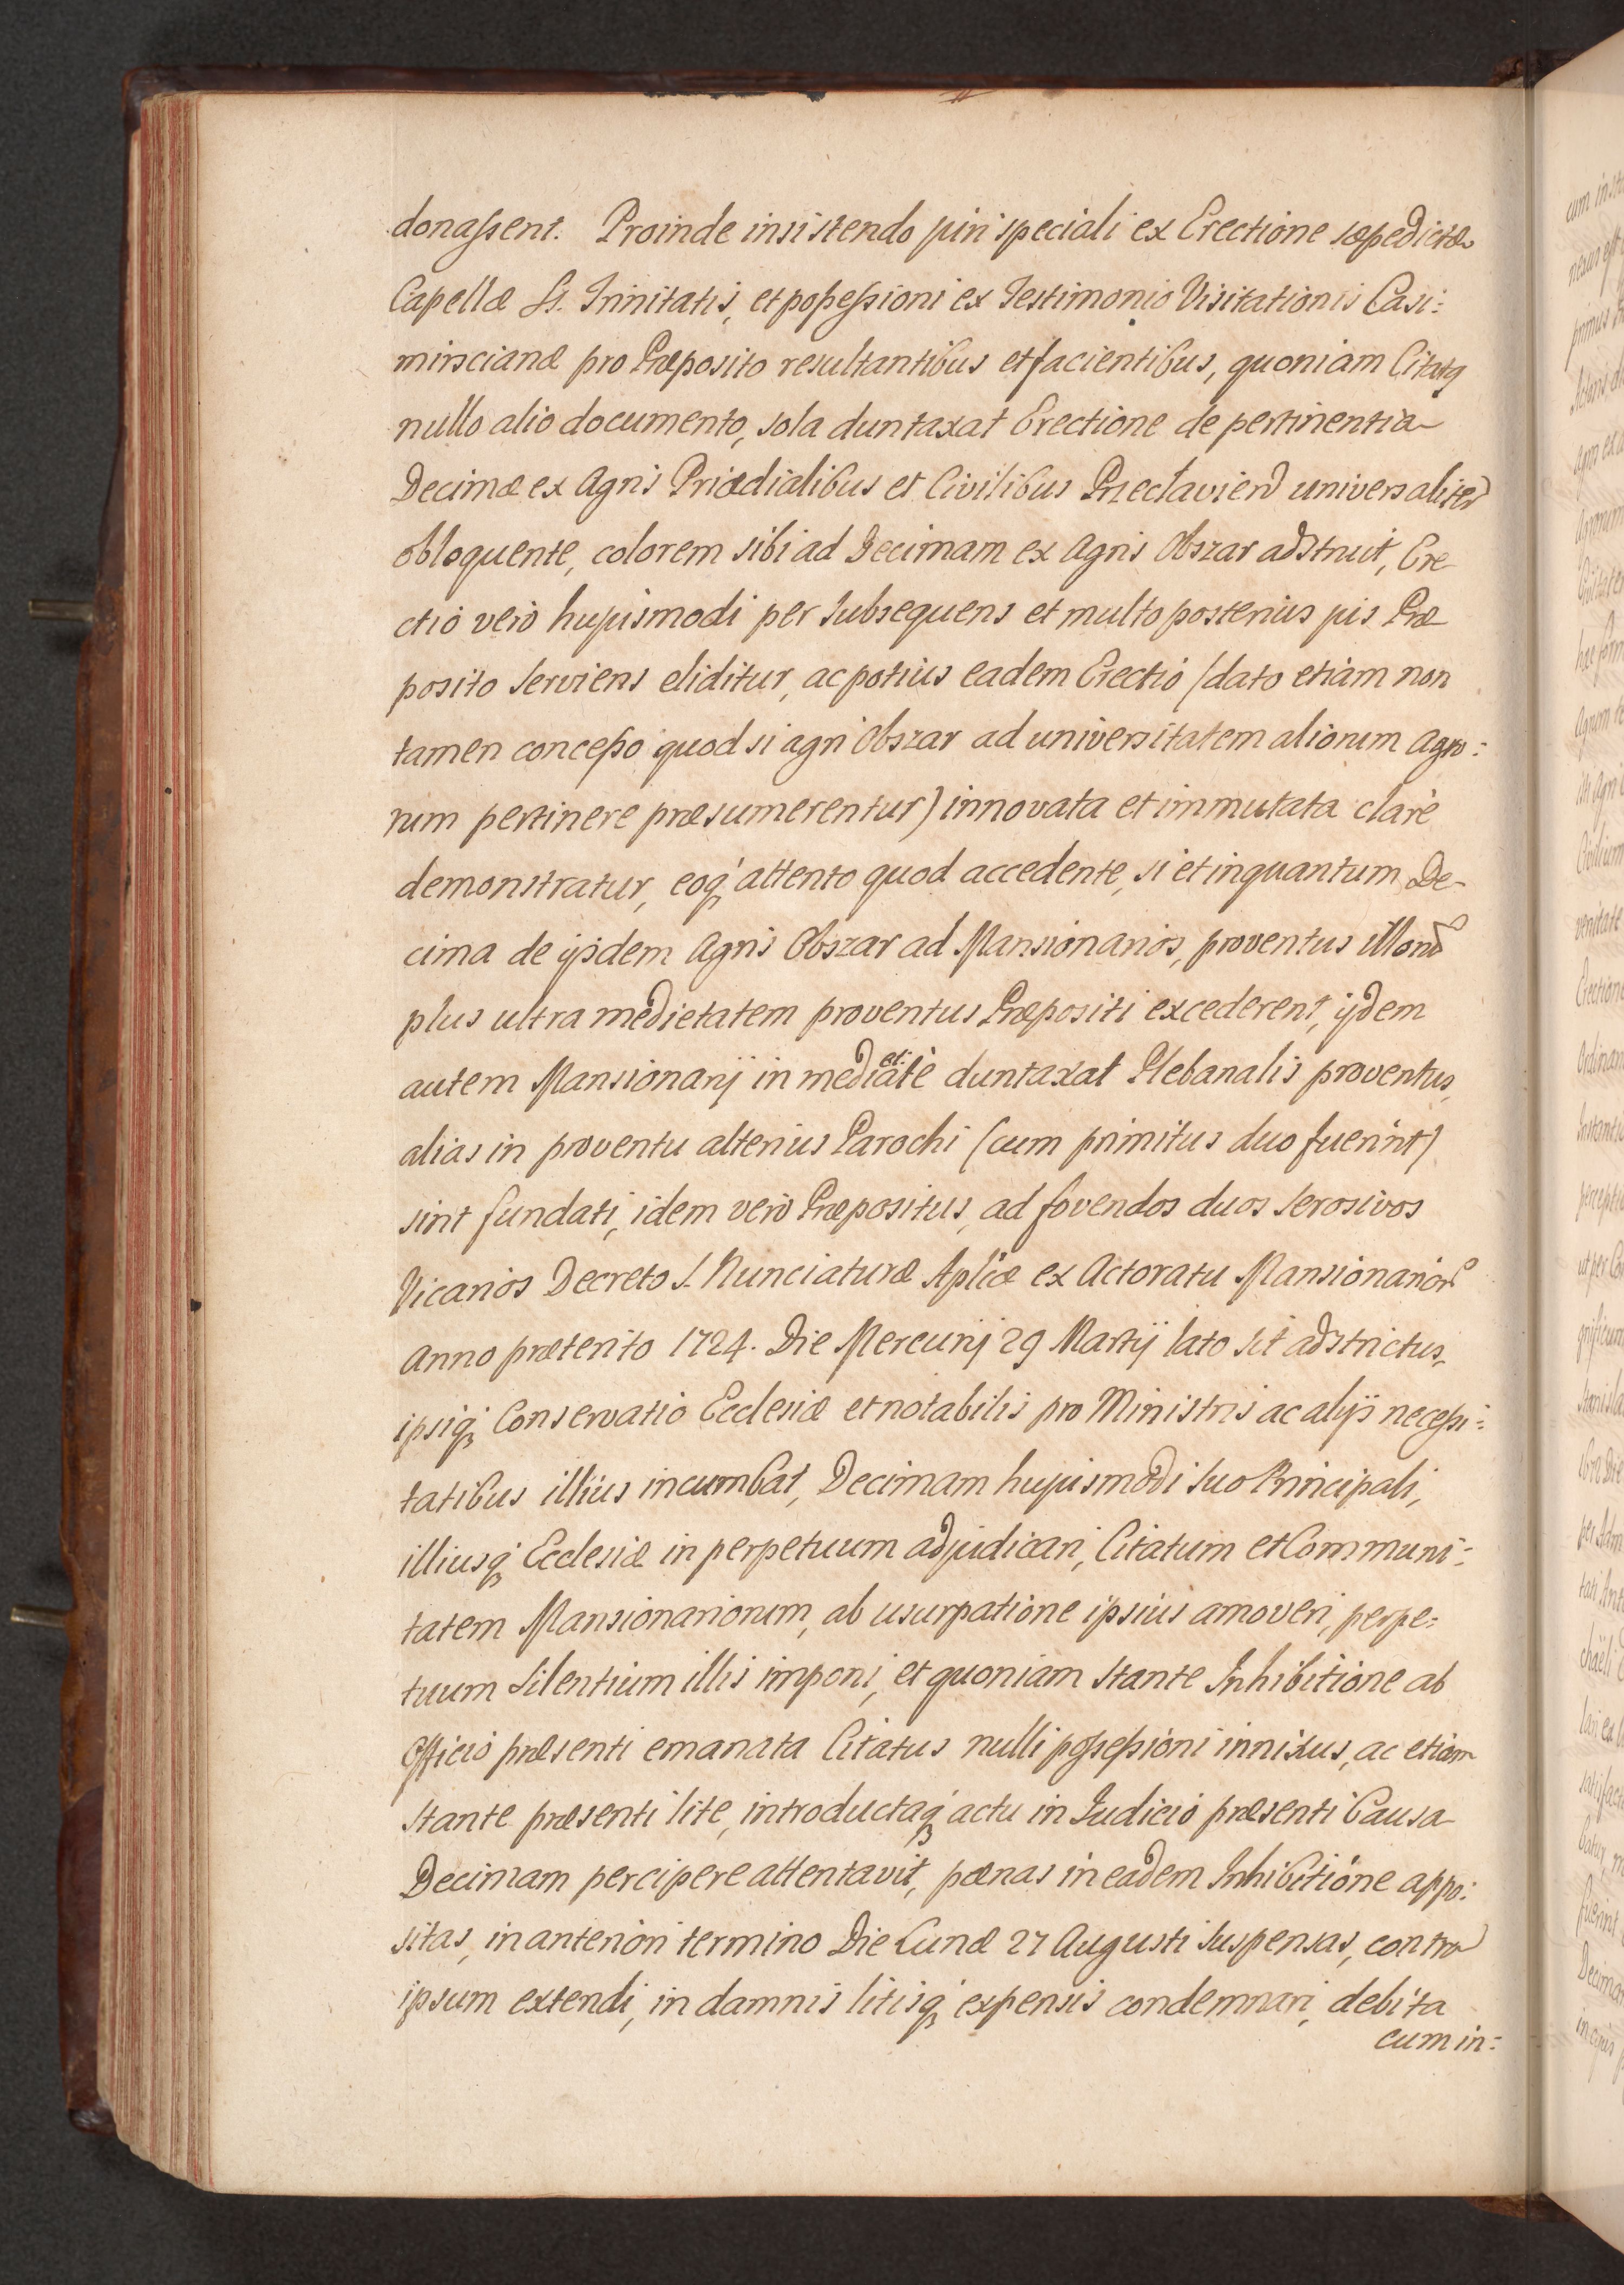 donassent. Proinde insistendo juri speciali ex Erectione sæpedictæ
Capellæ S. Trinitatis, et possessioni ex Testimonio Visitationis Casi:
mirscianæ pro Præposito resultantibus et facientibus, quoniam Citatq
nullo alio documento, sola duntaxat Erectione de pertinentia
Decimæ ex Agris Prædialibus et Civilibus Przecłavien universaliter
obloquente, colorem sibi ad Decimam ex Agris Obszar adstruit, Ere
ctio verò hujusmodi per subsequens et multo posterius jus Præ
posito serviens eliditur, ac potius eadem Erectio (dato etiam non
tamen concesso quod si agri Obszar ad universitatem aliorum Agro:
rum pertinere præsumerentur) innovata et immutata clarè
demonstratur, eoq attento quod accedente, si et inquantum De-
cima de ijsdem Agris Obszar ad Mansionarios, proventus illorũ
plus ultra medietatem proventus Præpositi excederent, ijdem
autem Mansionarij in medietate duntaxat Plebanalis proventus,
alias in proventu alterius Parochi (cum primitus duo fuerint)
sint fundati, idem verò Præpositus, ad fovendos duos Serosivos
Vicarios Decreto S. Nunciaturæ Aplicæ ex Actoratu Mansionarior
Anno præterito 1724. Die Mercurij 29 Martij lato sit adstrictus,
ipsiq Conservatio Ecclesiæ et notabilis pro Ministris ac alijs necessi:
tatibus illius incumbat, Decimam hujusmodi suo Principali,
illiusq Ecclesiæ in perpetuum adjudicari, Citatum et Communi:
tatem Mansionariorum, ab usurpatione ipsius amoveri, perpe:
tuum Silentium illis imponi, et quoniam stante Inhibitione ab
Officio præsenti emanata Citatus nulli possessioni innixus, ac etiam
stante præsenti lite, introductaq actu in Judicio præsenti Causa
Decimam percipere attentavit, pœnas in eadem Inhibitione appo:
sitas, in anteriori termino Die Lunæ 27 Augusti suspensas, contra
ipsum extendi, in damnis litisq expensis condemnari, debita
cum in: